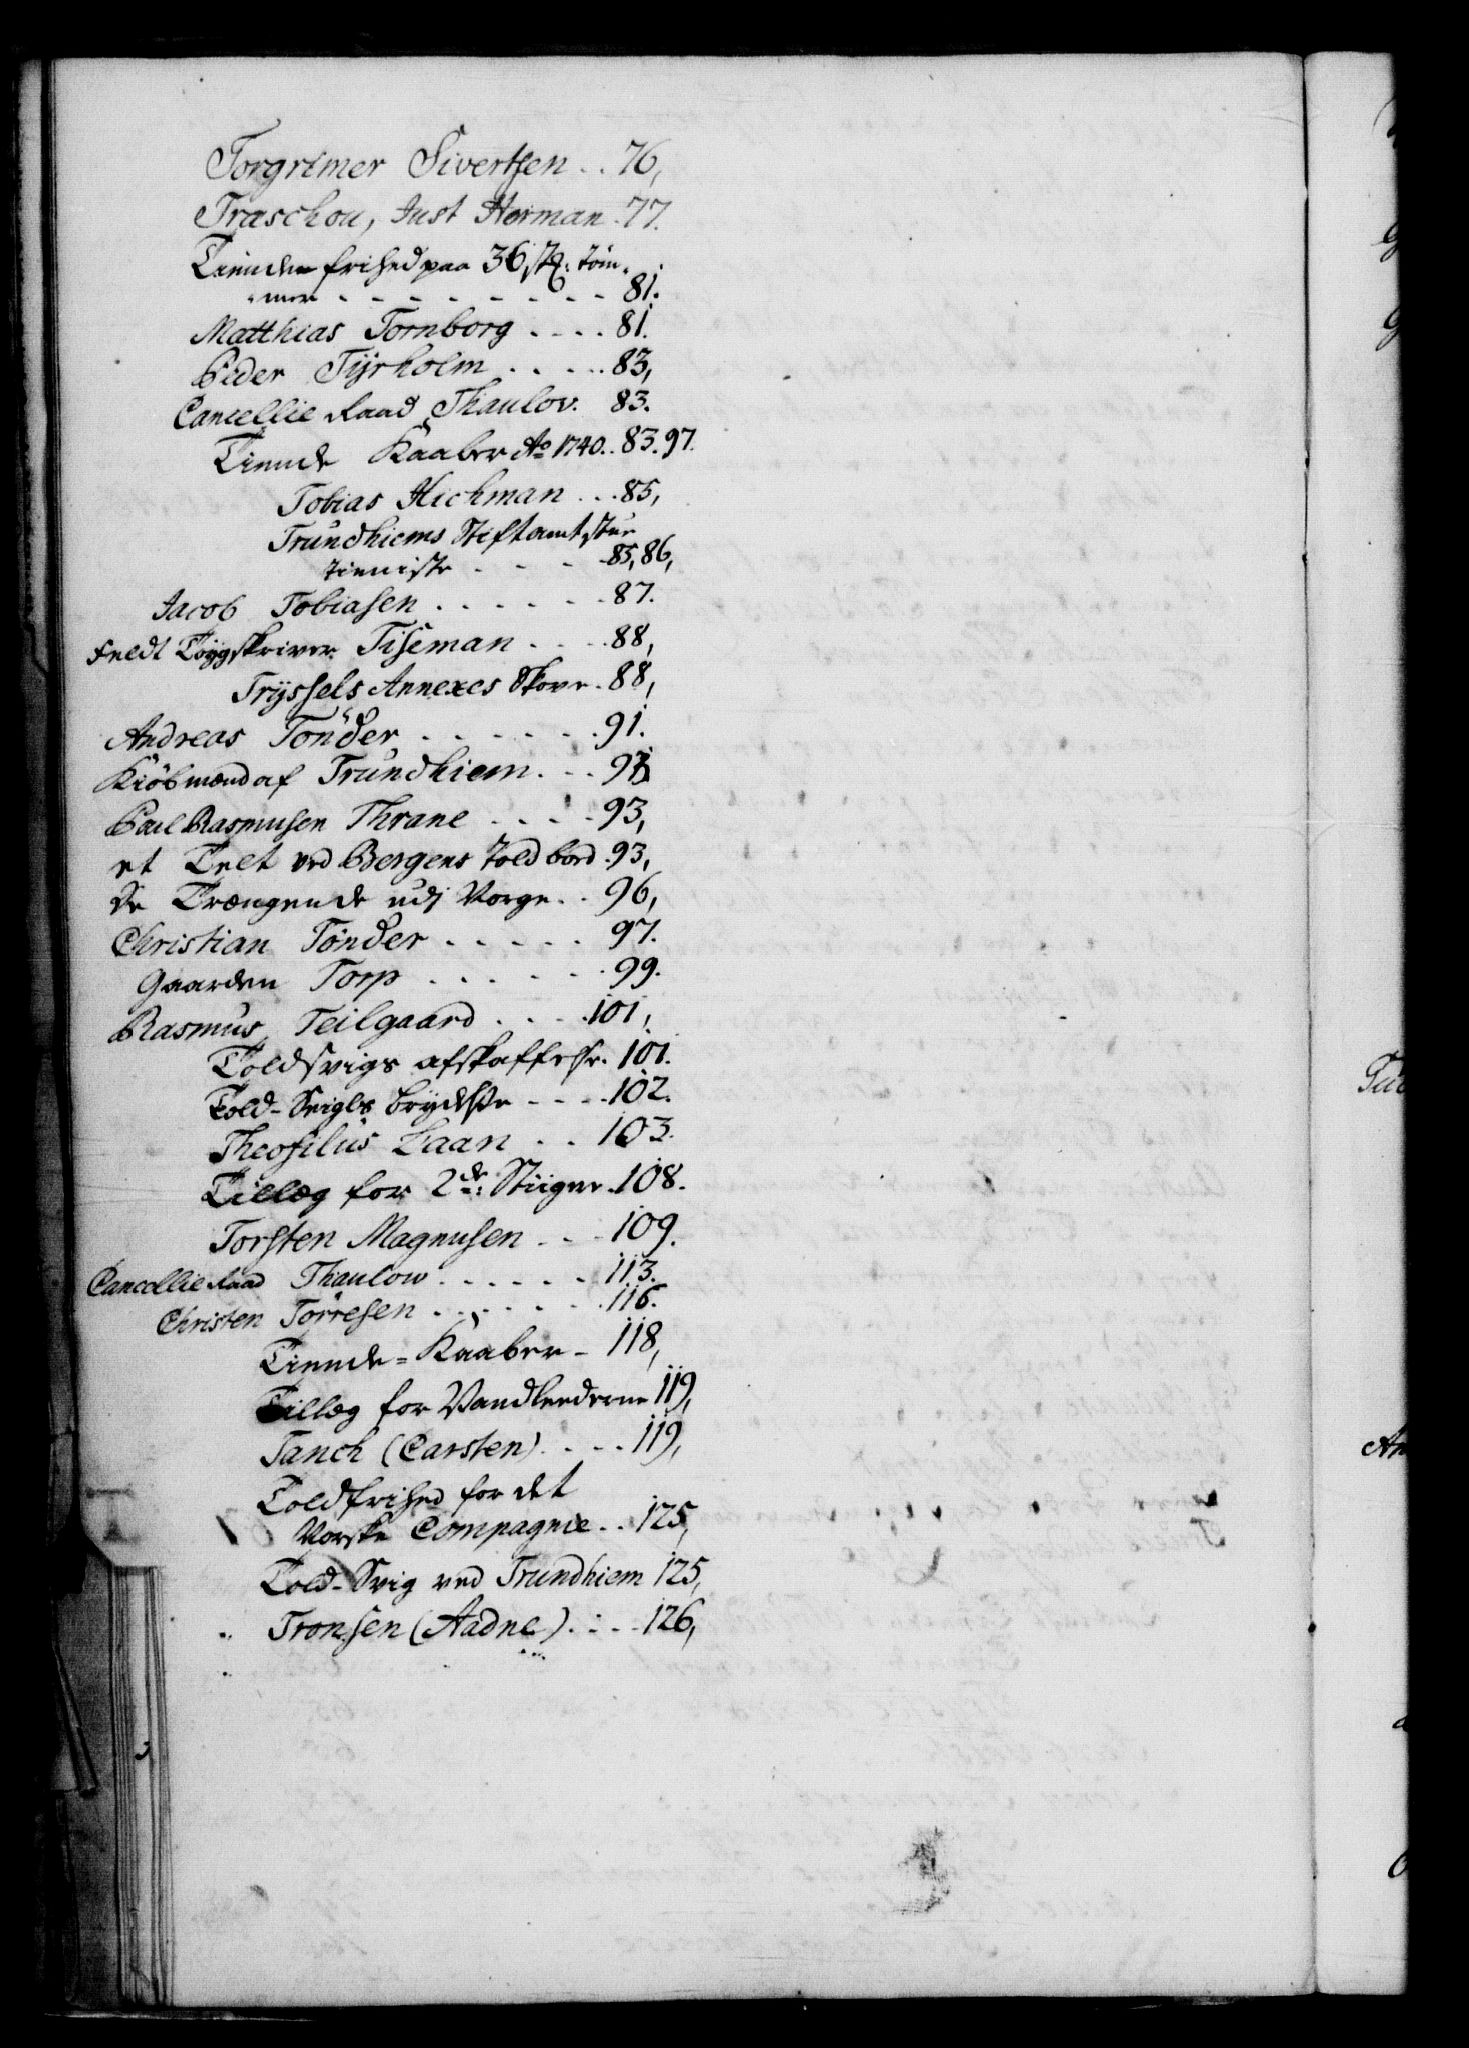 Torgrimer Sivertsen . . 76,
Traschou, Just Herman . 77.
Tiende frihed paa 36 stk: töm-
"mer - - - - - - - - - 81.
Matthias Tornborg . . . . 81.
Peder Tÿrholm . . . . . 83,
Cancellie Raad Thaulov. 83.
Tiende Kaaber Ao 1740 . . 83. 97.
Tobias Hichman . . . 85,
Trundhiems Stiftamtstue
tieniste - - - - 85, 86,
Jacob Tobiasen . . . . . . 87.
Feldt Töÿgskriver Tiseman . . . 88,
Trÿssels Annexes Skove . 88,
Andreas Tönder . . . . . . 91.
Kiöbmænd af Trundhiem . . . 93
Poul Rasmusen Thrane . . . . 93,
et Telt ved Bergens Told bord . 93,
De Trængende udj Norge . . 96,
Christian Tönder . . . . . 97.
Gaarden Torp . . . . . . 99.
Rasmus Teilgaard . . . . 101,
Toldsvigs afskaffelse . 101.
Told-Svigs brÿdelse - - - - 102.
Theofilus Laan . . 103.
Tillæg for 2de: Stiigere . 108.
Torsten Magnusen . . . 109.
Cancellie Raad Thaulow . . . . . . 113.
Christen Torresen . . . . . . . 116.
Tiende = Kaaber - 118,
Tillæg for Vandlederne 119,
Tanch (Carsten) . . . . 119,
Toldfrihed for det
Norske Compagnie . . 125,
Told-Svig ved Trundhiem 125,
Tronsen (Aadne) . : . . 126,